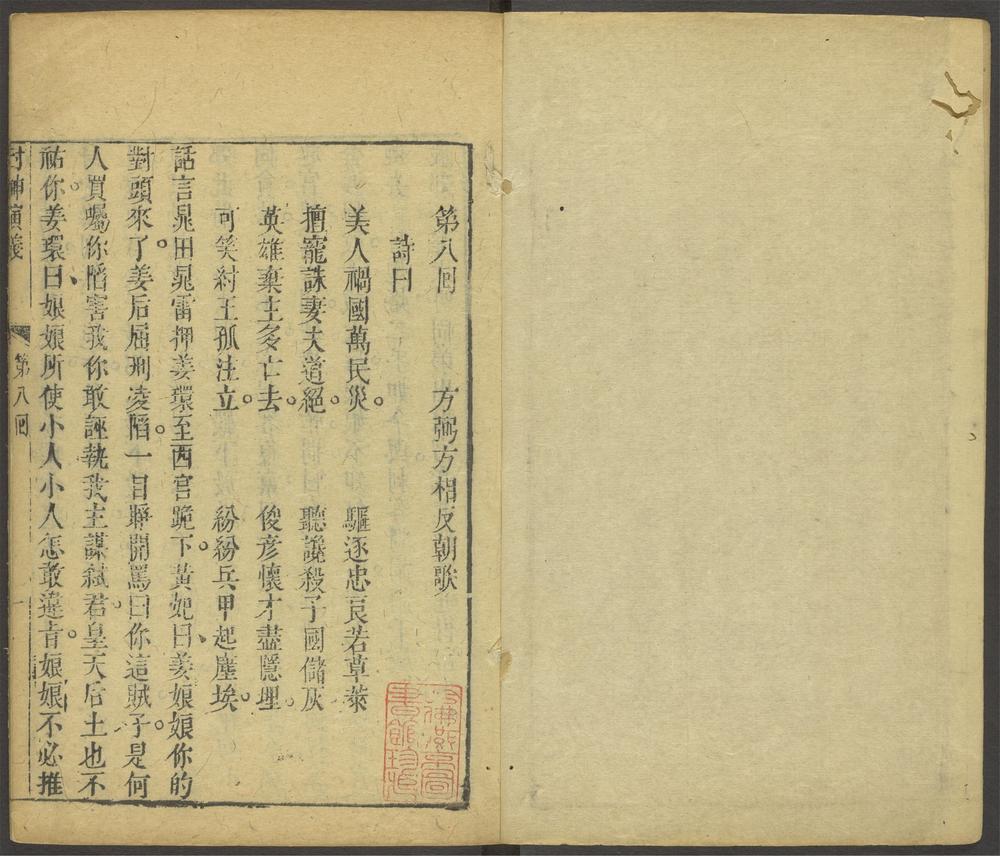 第八回 方弼方相反朝歌
詩曰
美人禍國萬民災。驅逐忠良若草萊
擅寵誅妻夫道絕。聽讒殺子國儲灰
英雄棄主多亡去。俊彦懷才盡隱埋。
可笑紂王孤注立。紛紛兵甲起塵埃。
話言晁田晁雷押姜環至西宮跪下。黃妃曰、姜娘娘你的
對頭來了。姜后屈刑凌陷。一目睜開罵曰你這賊子。是何
人買囑你陷害我你敢誣執我主謀弑君。皇天后土也不
祐你。姜環曰、娘娘所使小人小人怎敢違旨。娘娘不必推
封神演義 第八回 一
哈佛燕京圖
書館珍藏